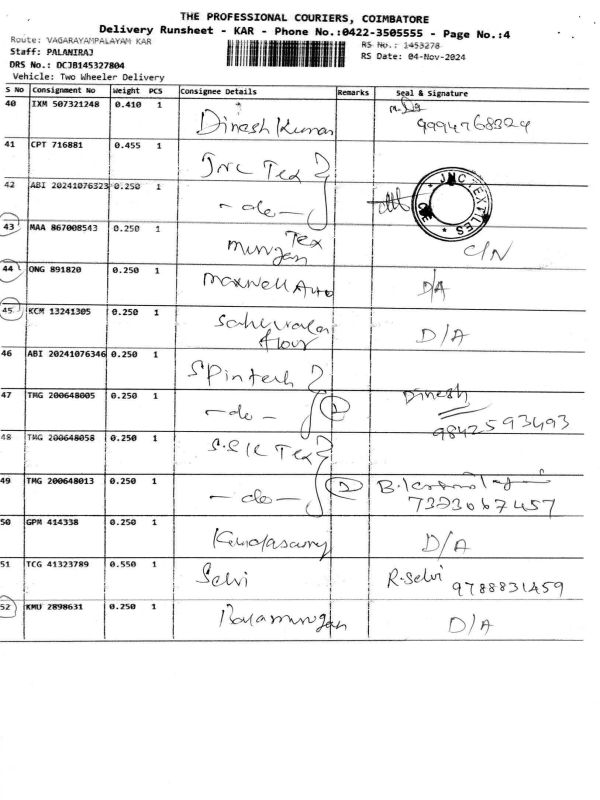 THE PROFESSIONAL COURIERS, COIMBATORE
Delivery Runsheet - KAR - Phone No.:0422-3505555 - Page No.:4
Route: VAGARAYAMPALAYAM KAR
RS No.: 1453278
Staff: PALANIRAJ
RS Date: 04-Nov-2024
DRS No.: DCJB145327804
Vehicle: Two Wheeler Delivery
S No Consignment No Weight PCS Consignee Details Remarks Seal & Signature
40 IXM 507321248 0.410 1 Dinesh Kumar 9994768324
41 CPT 716881 0.455 1 JNC Tex
42 ABI 20241076323 0.250 1 -do- JNC TEXTILES
43 MAA 867008543 0.250 1 Murugan Tex C/N
44 ONG 891820 0.250 1 Maxwell Auto D/A
45 KCM 13241305 0.250 1 flour D/A
46 ABI 20241076346 0.250 1 Spintech
47 TMG 200648005 0.250 1 -do- 2 Dinesh 9842593493
48 TMG 200648058 0.250 1 S.S.K Tex
49 TMG 200648013 0.250 1 -do- 2 7373067457
50 GPM 414338 0.250 1 Kandasamy D/A
51 TCG 41323789 0.550 1 Selvi R.Selvi 9788831459
52 KMU 2898631 0.250 1 Balamurugan D/A